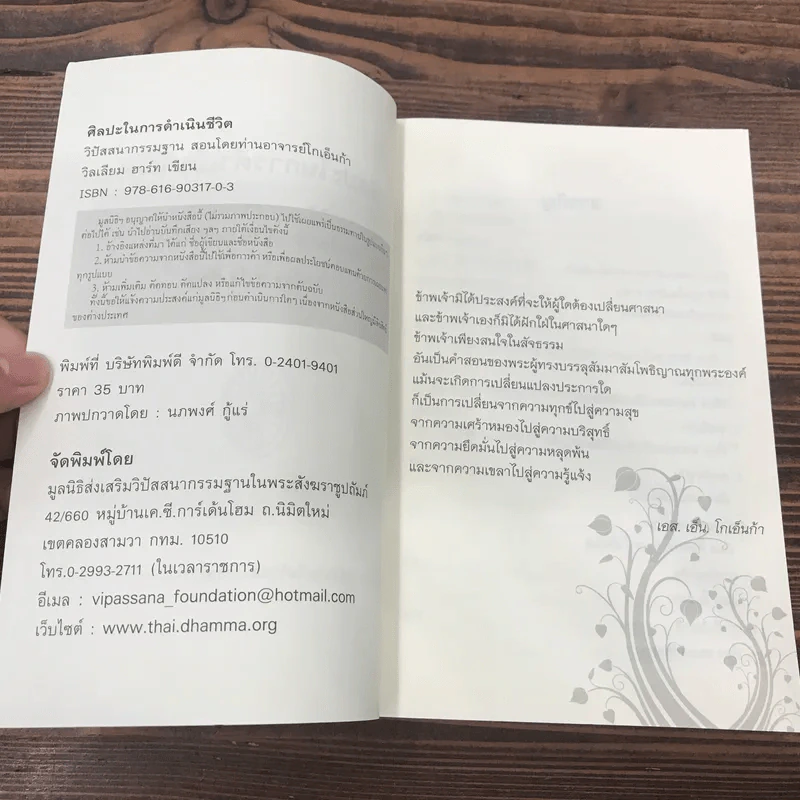 ศิลปะในการดำเนินชีวิต
วิปัสสนากรรมฐาน สอนโดยท่านอาจารย์โกเอ็นก้า
วิลเลียม ฮาร์ท เขียน
ISBN : 978-616-90317-0-3
มูลนิธิฯ อนุญาตให้นำหนังสือนี้ (ไม่รวมภาพประกอบ) ไปใช้เผยแพร่เป็นธรรมทาน
ต่อไปได้ เช่น นำไปอ่านบันทึกเสียง ฯลฯ ภายใต้เงื่อนไขดังนี้
1. อ้างอิงแหล่งที่มา ได้แก่ ชื่อผู้เขียนและชื่อหนังสือ
2. ห้ามนำข้อความจากหนังสือไปใช้เพื่อการค้า หรือเพื่อผลประโยชน์ตอบแทน
ทุกรูปแบบ
3. ห้ามเพิ่มเติม ตัดทอน ดัดแปลง หรือแก้ไขข้อความจากต้นฉบับ
ทั้งนี้ขอให้แจ้งความประสงค์แก่มูลนิธิฯ ก่อนดำเนินการใดๆ เนื่องจากหนังสือส่วนใหญ่มีลิขสิทธิ์
ของต่างประเทศ
พิมพ์ที่ บริษัทพิมพ์ดี จำกัด โทร. 0-2401-9401
ราคา 35 บาท
ภาพปกวาดโดย : นภพงศ์ กู้แร่
จัดพิมพ์โดย
มูลนิธิส่งเสริมวิปัสสนากรรมฐานในพระสังฆราชูปถัมภ์
42/660 หมู่บ้านเค.ซี.การ์เด้นโฮม ถ.นิมิตใหม่
เขตคลองสามวา กทม. 10510
โทร.0-2993-2711 (ในเวลาราชการ)
อีเมล : vipassana_foundation@hotmail.com
เว็บไซต์ : www.thai.dhamma.org
ข้าพเจ้ามิได้ประสงค์ที่จะให้ผู้ใดต้องเปลี่ยนศาสนา
และข้าพเจ้าเองก็มิได้ฝักใฝ่ในศาสนาใดๆ
ข้าพเจ้าเพียงสนใจในสัจธรรม
อันเป็นคำสอนของพระผู้ทรงบรรลุสัมมาสัมโพธิญาณทุกพระองค์
แม้นจะเกิดการเปลี่ยนแปลงประการใด
ก็เป็นการเปลี่ยนจากความทุกข์ไปสู่ความสุข
จากความเศร้าหมองไปสู่ความบริสุทธิ์
จากความยึดมั่นไปสู่ความหลุดพ้น
และจากความเขลาไปสู่ความรู้แจ้ง
เอส. เอ็น. โกเอ็นก้า